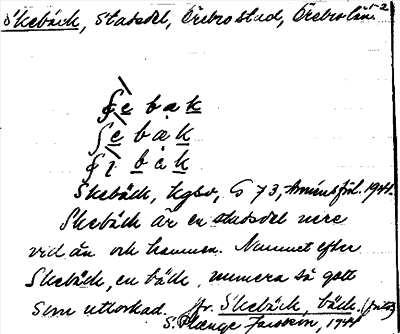 Skebäck, stadsdel, Örebro stad, Örebro län.
ʃe bak
ʃe bak
bäk
Skebäck, hgsv, G 73, 1944.
Skebäck är en stadsdel nere
vid ån och hamnen. Namnet efter
Skebäck, en bäck, numera så gott
som uttorkad. Jfr Skebäck, bäck.
S. 1944